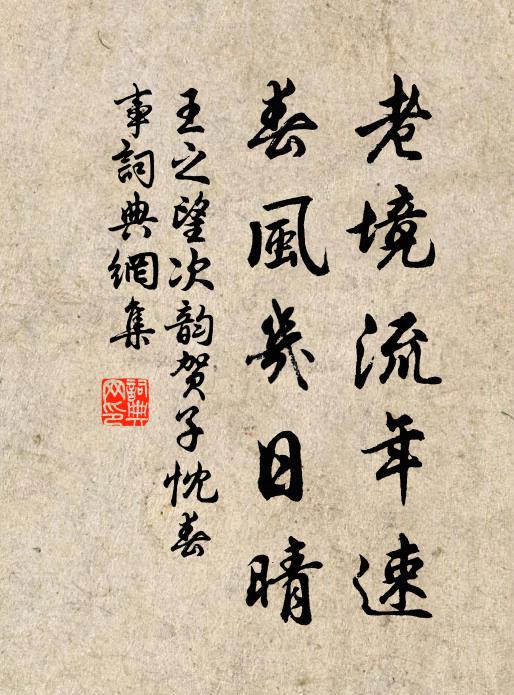 老境流年速
春風幾日晴
王之望次韵賀子忱春
事詞典網集
詞典
网印